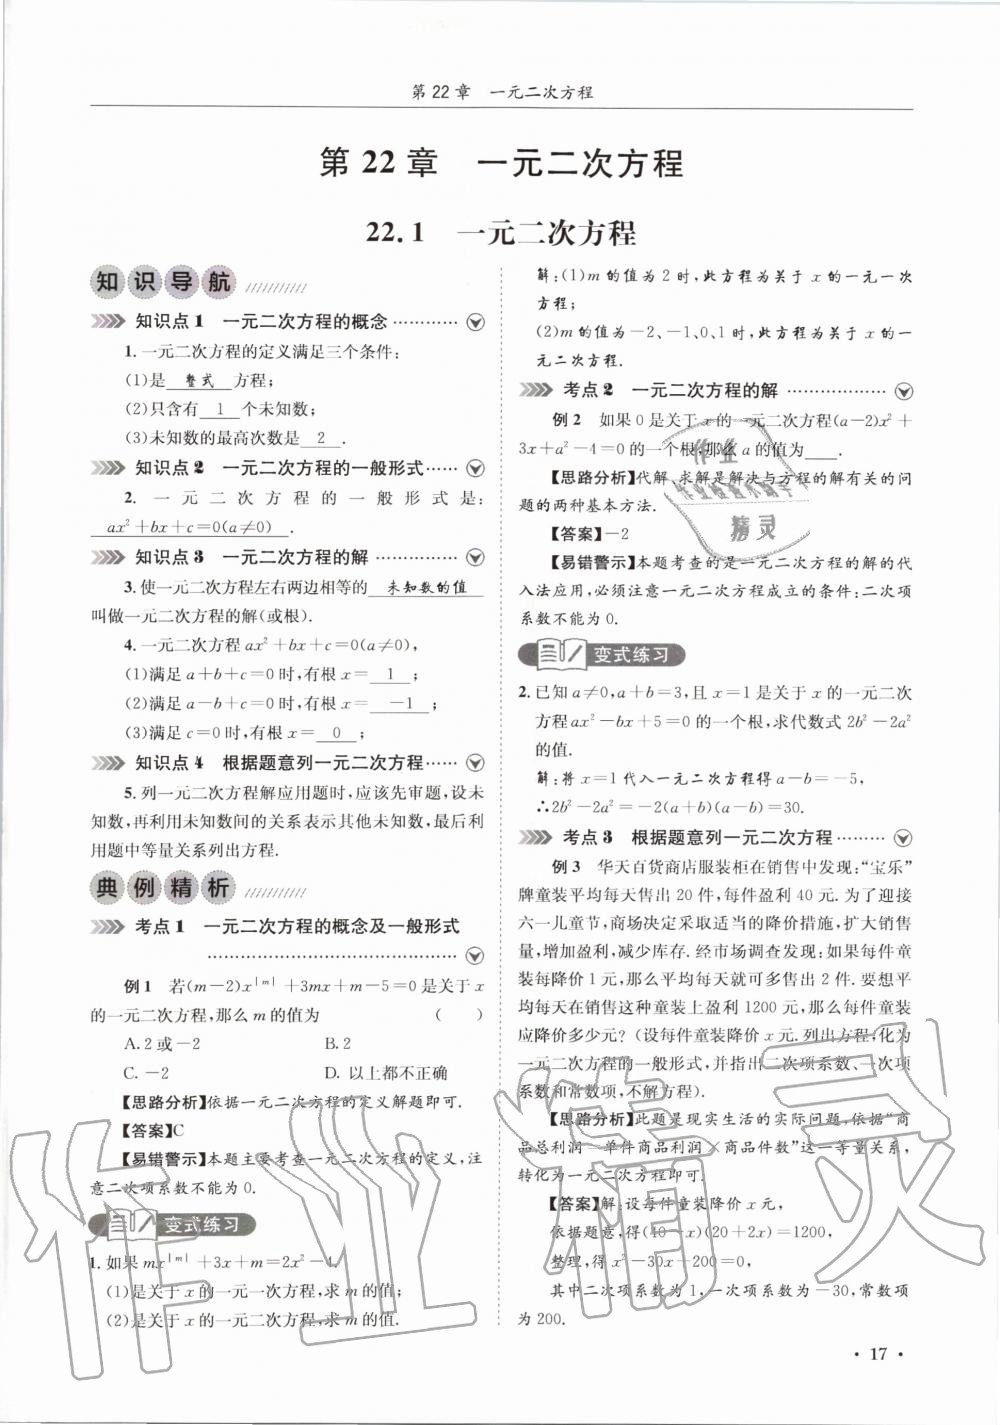 第22章　一元二次方程
第22章　一元二次方程
22.1　一元二次方程
知识导航
知识点1　一元二次方程的概念…………
1.一元二次方程的定义满足三个条件:
(1)是 整式 方程;
(2)只含有 1 个未知数;
(3)未知数的最高次数是 2 .
知识点2　一元二次方程的一般形式……
2. 一元二次方程的一般形式是:
ax²+bx+c=0(a≠0) .
知识点3　一元二次方程的解…………
3.使一元二次方程左右两边相等的 未知数的值
叫做一元二次方程的解(或根).
4.一元二次方程ax²+bx+c=0(a≠0),
(1)满足a+b+c=0时,有根x= 1 ;
(2)满足a-b+c=0时,有根x= -1 ;
(3)满足c=0时,有根x= 0 ;
知识点4　根据题意列一元二次方程……
5.列一元二次方程解应用题时,应该先审题,设未
知数,再利用未知数间的关系表示其他未知数,最后利
用题中等量关系列出方程.
典例精析
考点1　一元二次方程的概念及一般形式
………………………………………
例1　若(m-2)x|m|+3mx+m-5=0是关于x
的一元二次方程,那么m的值为　(　)
A.2或-2　B.2
C.-2　D.以上都不正确
【思路分析】依据一元二次方程的定义解题即可.
【答案】C
【易错警示】本题主要考查一元二次方程的定义,注
意二次项系数不能为0.
变式练习
1.如果mx|m|+3x+m=2x²-4.
(1)是关于x的一元一次方程,求m的值;
(2)是关于x的一元二次方程,求m的值.
解:(1)m的值为2时,此方程为关于x的一元一次
方程;
(2)m的值为-2、-1、0、1时,此方程为关于x的一
元二次方程.
考点2　一元二次方程的解………………
例2　如果0是关于x的一元二次方程(a-2)x²+
3x+a²-4=0的一个根,那么a的值为____.
【思路分析】代解、求解是解决与方程的解有关的问
题的两种基本方法.
【答案】-2
【易错警示】本题考查的是一元二次方程的解的代
入法应用,必须注意一元二次方程成立的条件:二次项
系数不能为0.
变式练习
2.已知a≠0,a+b=3,且x=1是关于x的一元二次
方程ax²-bx+5=0的一个根,求代数式2b²-2a²
的值.
解:将x=1代入一元二次方程得a-b=-5,
∴2b²-2a²=-2(a+b)(a-b)=30.
考点3　根据题意列一元二次方程………
例3　华天百货商店服装柜在销售中发现:“宝乐”
牌童装平均每天售出20件,每件盈利40元.为了迎接
六一儿童节,商场决定采取适当的降价措施,扩大销售
量,增加盈利,减少库存.经市场调查发现:如果每件童
装每降价1元,那么平均每天就可多售出2件.要想平
均每天在销售这种童装上盈利1200元,那么每件童装
应降价多少元?(设每件童装降价x元.列出方程,化为
一元二次方程的一般形式,并指出二次项系数、一次项
系数和常数项,不解方程).
【思路分析】此题是现实生活的实际问题,依据“商
品总利润=单件商品利润×商品件数”这一等量关系,
转化为一元二次方程即可.
【答案】解:设每件童装降价x元,
依据题意,得(40-x)(20+2x)=1200,
整理,得x²-30x+200=0,
其中二次项系数为1,一次项系数为-30,常数项
为200.
作业
作业检查小助手
精灵
作业精灵
·17·